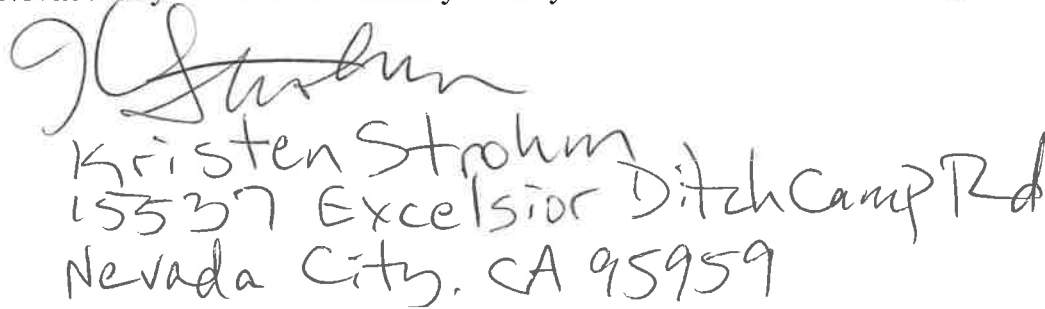 Strohm
Kristen Strohm
15537 Excelsior Ditch Camp Rd
Nevada City, CA 95959